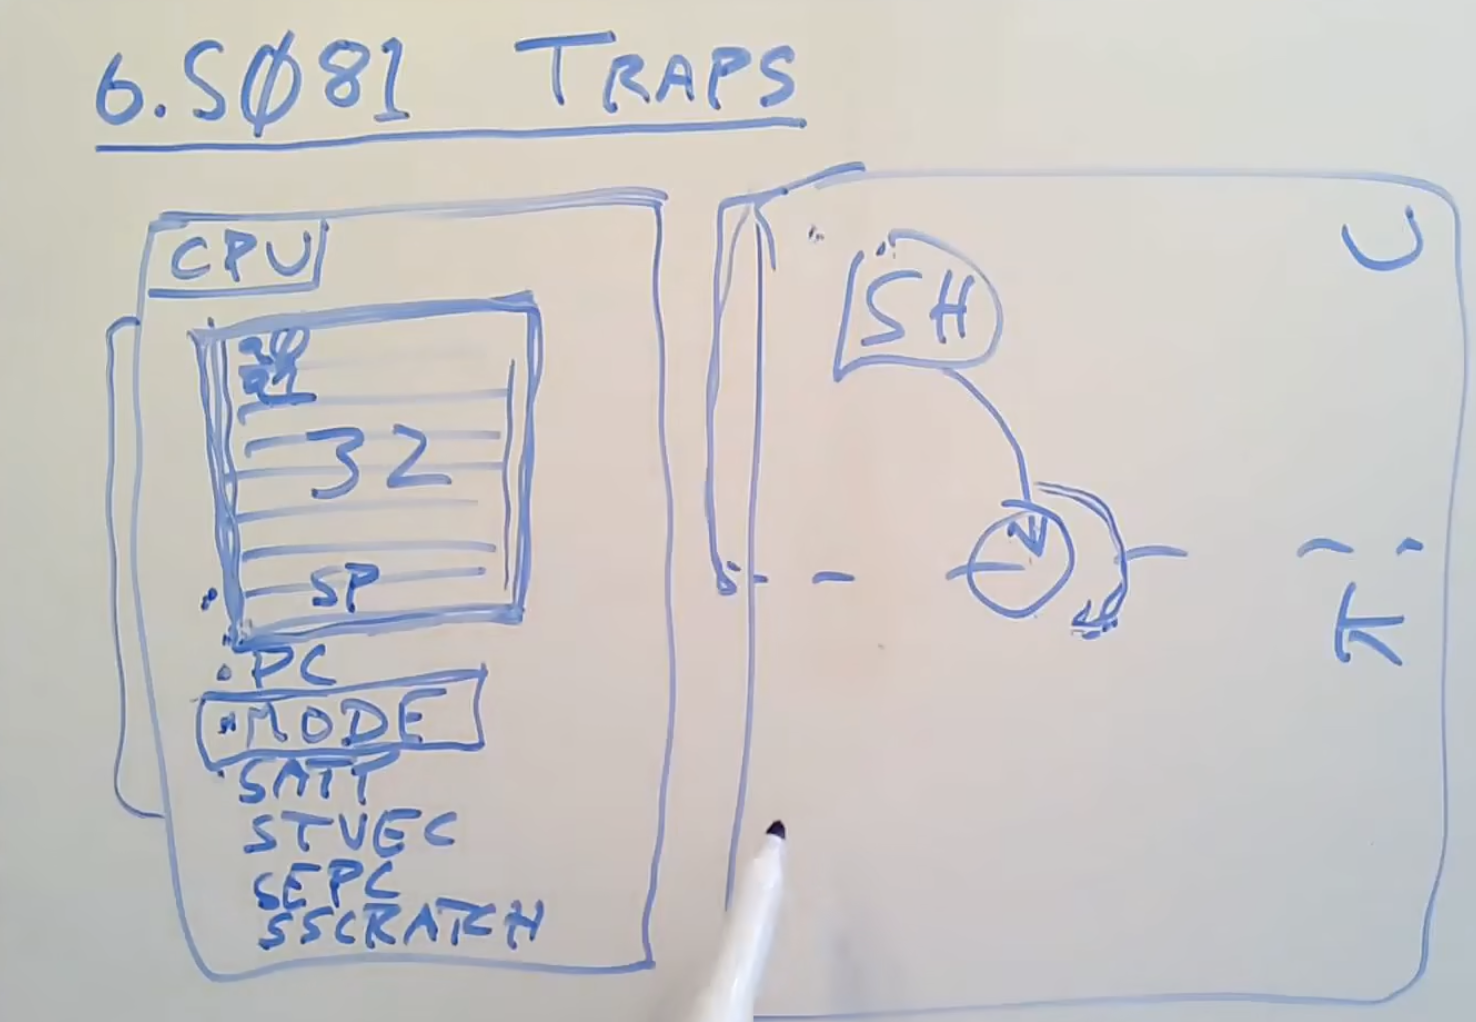 6.SØ81 TRAPS
CPU
32
SP
PC
MODE
SATP
STVEC
SEPC
SSCRATCH
SH
U
K